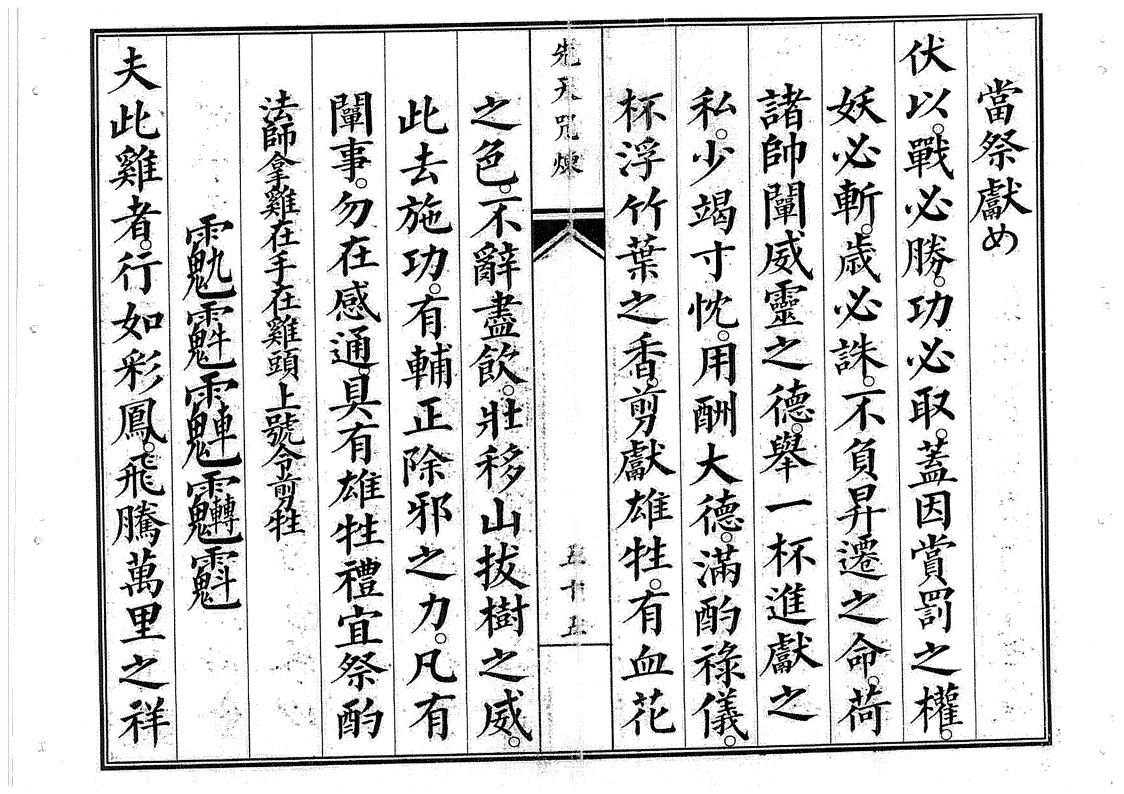 當祭獻め
伏以。戰必勝。功必取。蓋因賞罰之權。
妖必斬。歲必誅。不負昇遷之命。荷
諸帥闡威靈之德。舉一杯進獻之
私。少竭寸忱。用酬大德。滿酌祿儀。
杯浮竹葉之香。剪獻雄牲。有血花
先天咒煉
五十五
之色。不辭盡飲。壯移山拔樹之威。
此去施功。有輔正除邪之力。凡有
闡事。勿在感通。具有雄牲禮宜祭酌
法師拿雞在手在雞頭上號令剪牲
夫此雞者。行如彩鳳。飛騰萬里之祥